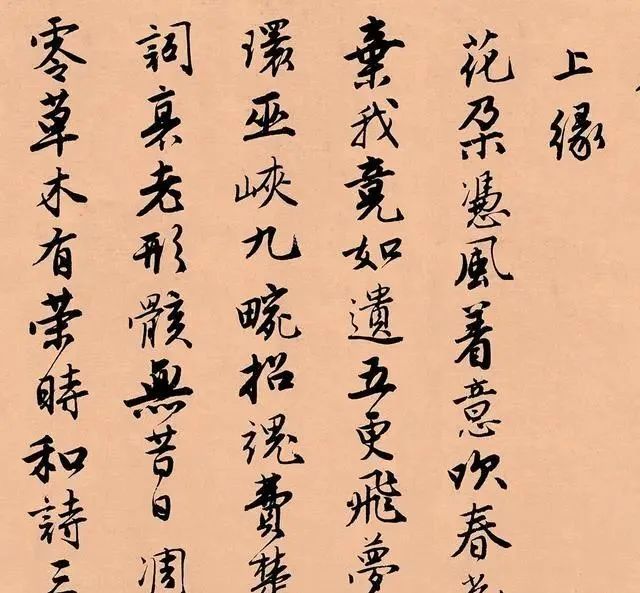 上緣
花朵憑風着意吹春
棄我竟如遺五更飛夢
環巫峽九畹招魂費楚
詞衰老形骸無昔日凋
零草木有荣時和詩三